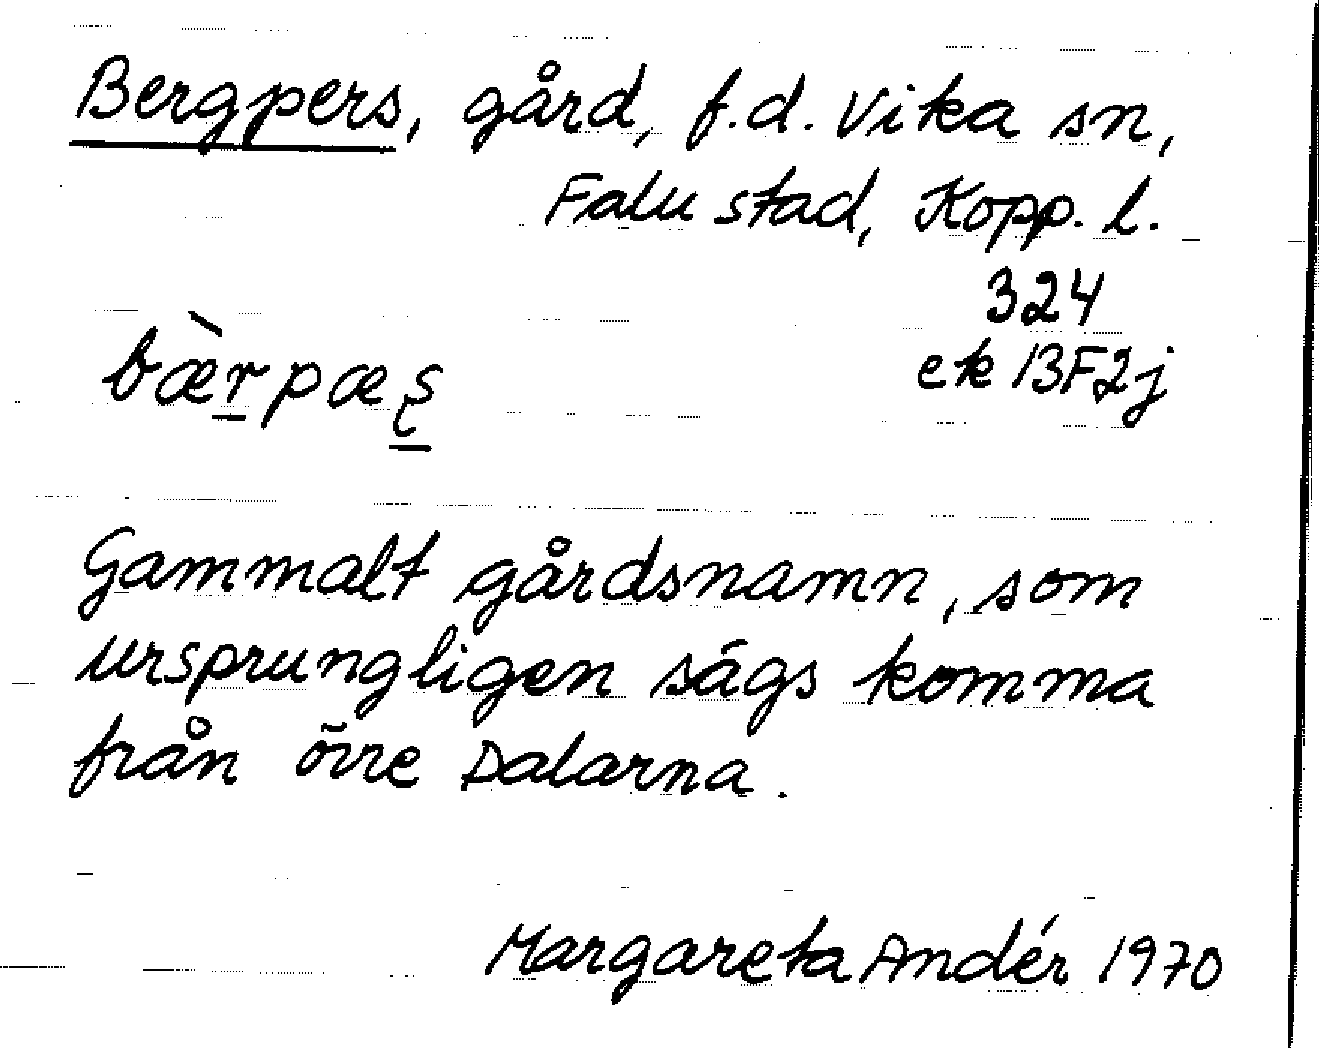 Bergpers, gård, f.d. Vika sn,
Falu stad, Kopp. l.
324
ek 13F2j
bæ̀rpæʂ
Gammalt gårdsnamn, som
ursprungligen sägs komma
från övre Dalarna.
Margareta Andér 1970